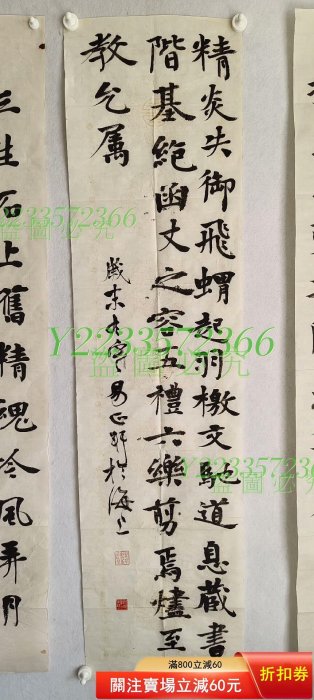 精炎失御飛蝟起羽檄交馳道息藏書
階基絕函丈之容五禮六樂剪焉燼至
教 属
歲末大寒易 於海上
三生石上舊精魂 風弄月
Y2233572366
盜圖必究
Y2233572366
盜圖必究
Y2233572366
盜圖必究
滿800立減60
關注賣場立減60元
折扣券